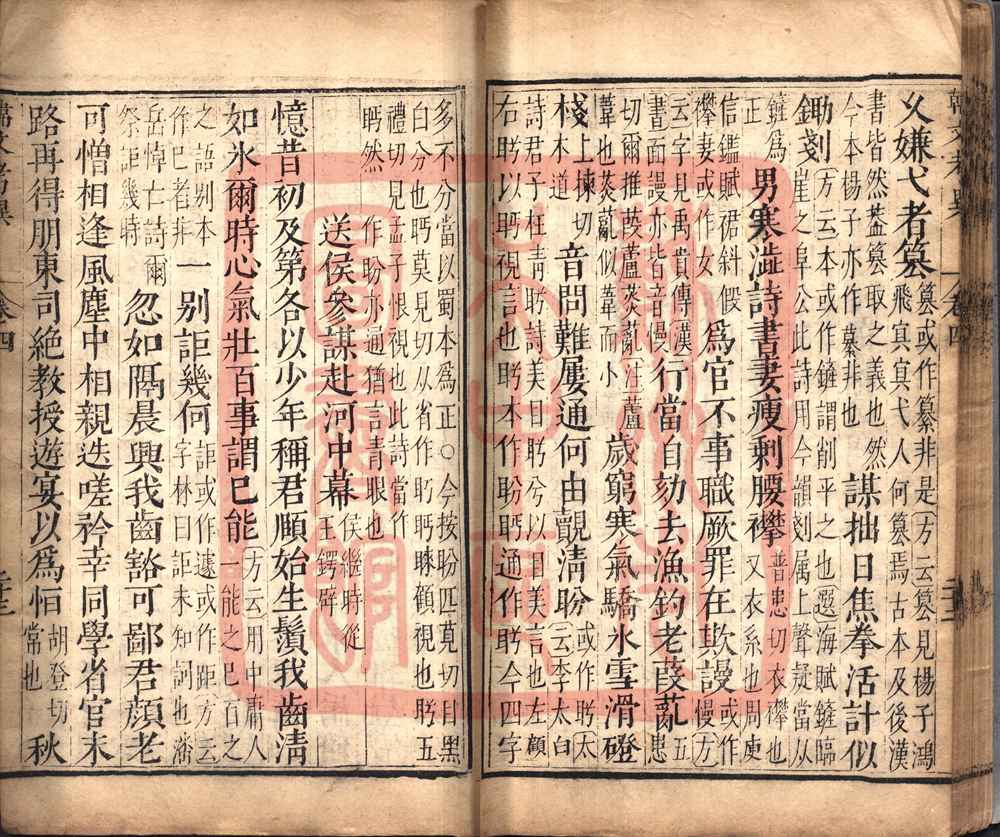 乂嫌弋者篡篡或作纂非是方云篡見楊子鴻
飛冥冥弋人何篡焉古本及後漢
書皆然葢篡取之義也然
今本楊子亦作纂非也
謀拙日焦拳活計似
鋤剗方云本或作鏟謂削平之也選海賦鏟臨
崖之阜公此詩用今韻剗属上聲疑當以
鏟爲
正
男寒澁詩書妻瘦剩腰襻普患切衣襻也
又衣系也周庾
信鑑賦裙斜假
襻妻或作女
爲官不事職厥罪在欺謾或作
慢方
云字見禹貢傳漢
書面謾亦皆音慢
行當自劾去漁釣老葭薍五
患
切爾雅葭蘆菼薍注蘆
葦也菼薍似葦而小
歲窮寒氣驕冰雪滑磴
棧上棟切
木道
音問難屢通何由覿清盼或作眄太
白
云李太白
詩君子枉清眄詩美目眄兮以目美言也左顧
右眄以眄視言也眄本作盼眄通作眄今四字
多不分當以蜀本爲正○今按盼匹莧切目黑
白分也眄莫見切从省作眄眄睞顧視也眄五
禮切見孟子恨視也此詩當作
眄然作盼亦通猶言青眼也
送侯參謀赴河中幕侯繼時從
王鍔辟
憶昔初及第各以少年稱君頤始生鬚我齒清
如氷爾時心氣壯百事謂已能方云用中庸人
一能之已百之
之語别本
作巳者非
一别詎幾何詎或作遽或作距方云
字林曰詎未知詞也潘
岳悼亡詩爾
祭詎幾時
忽如隔晨興我齒豁可鄙君顔老
可憎相逢風塵中相親迭嗟矜幸同學省官末
路再得朋東司絶教授遊宴以爲恒胡登切
常也
秋
韓文考異
卷四